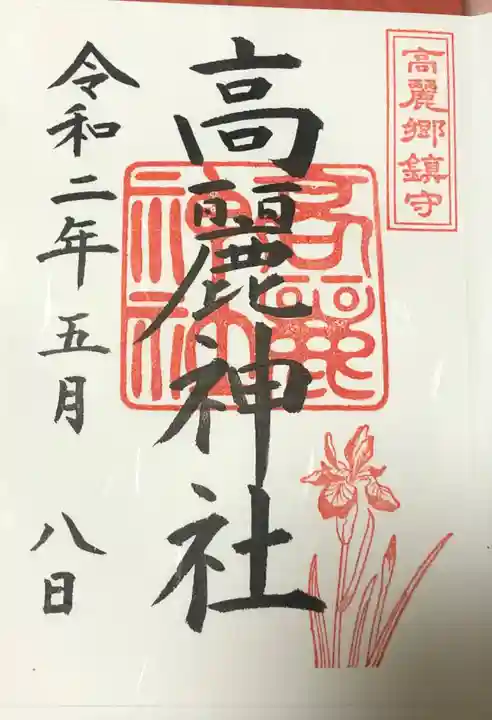 高麗郷鎮守
高麗神社
高麗神社
令和二年五月八日